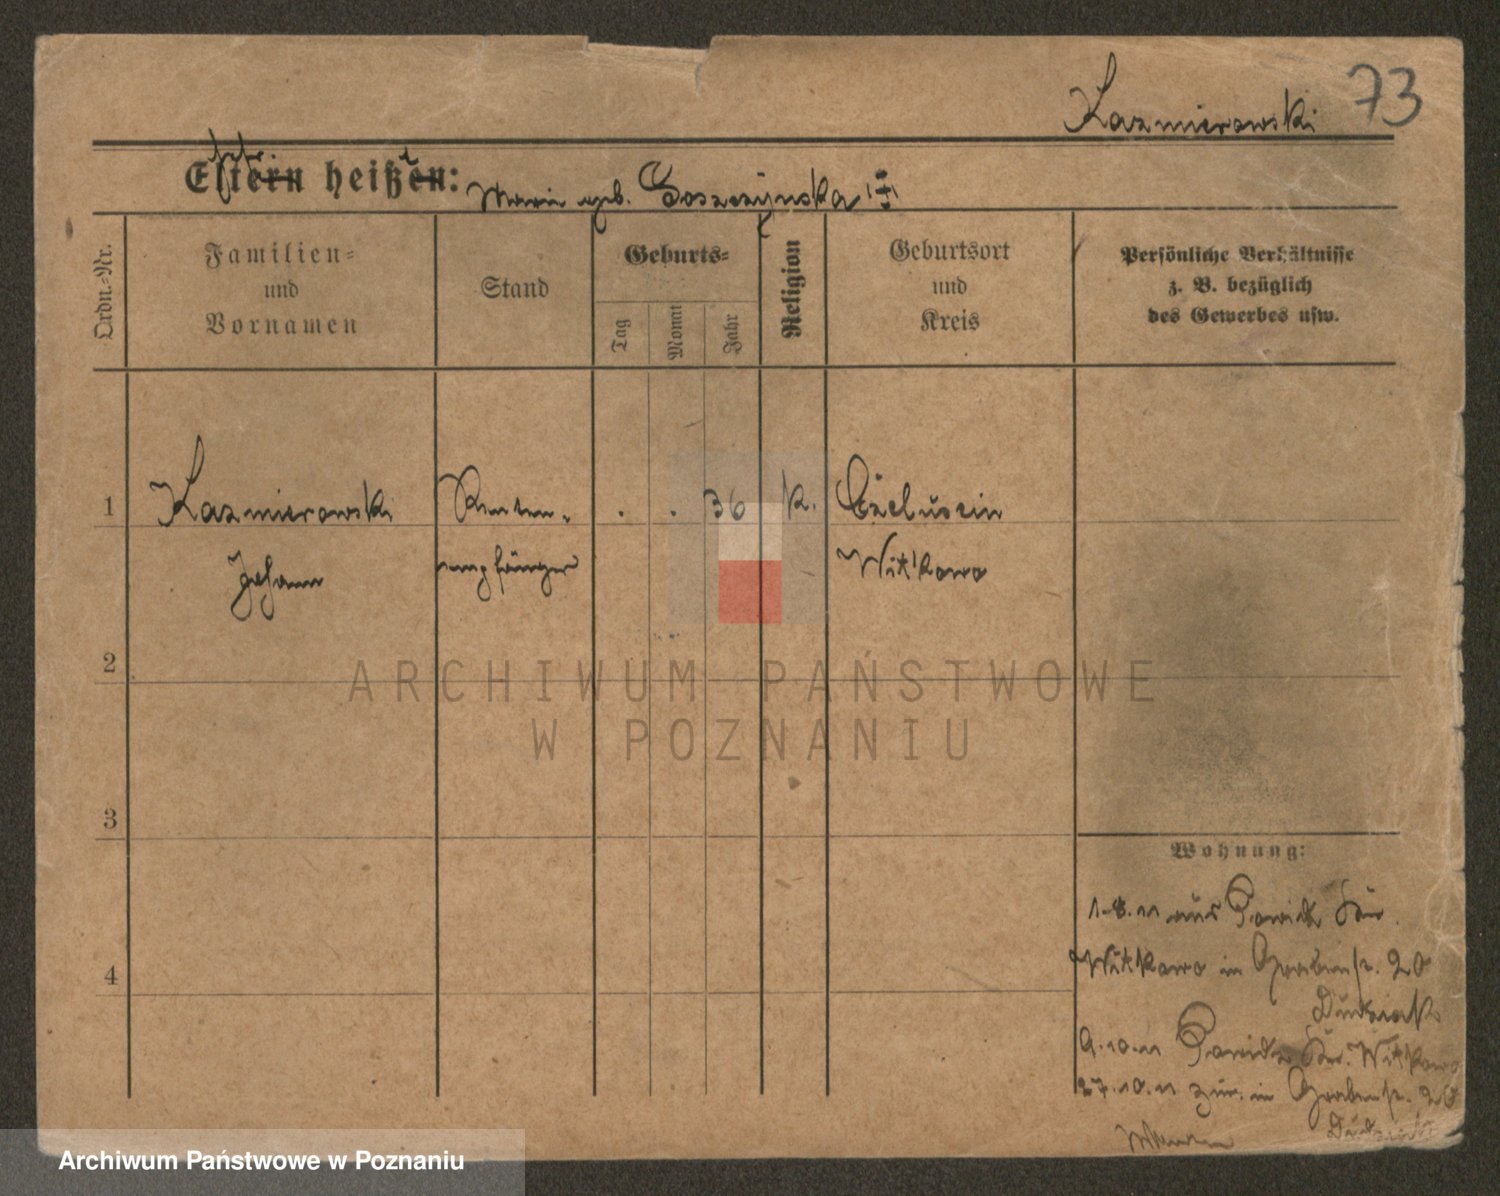 Kazmierowski 73
Eltern heißen: Maria geb. Goszczynska
Ordn.-Nr.
Familien-
und
Vornamen
Stand
Geburts-
Tag
Monat
Jahr
Religion
Geburtsort
und
Kreis
Persönliche Verhältnisse
z. B. bezüglich
des Gewerbes usw.
1 Kazmierowski Renten- . . 36 k.
Johann empfänger Witkowo
2
3
4
Wohnung:
1.8.11 aus Powidz Kr.
Witkowo in Grabenstr. 20
9.10.11 Powidz Kr. Witkowo
27.10.11 zur. in Grabenstr. 20
ARCHIWUM PAŃSTWOWE
W POZNANIU
Archiwum Państwowe w Poznaniu